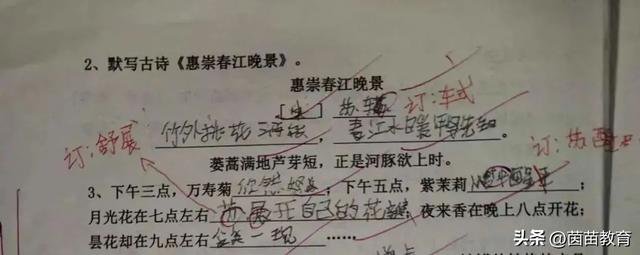 2、默写古诗《惠崇春江晚景》。
惠崇春江晚景
[  ] 苏 订：车式
订：舒展 竹外桃花三两枝，春江水暖鸭先知。 订：苏醒
蒌蒿满地芦芽短，正是河豚欲上时。
3、下午三点，万寿菊欣然怒放；下午五点，紫茉莉；
月光花在七点左右展开自己的花瓣；夜来香在晚上八点开花；
昙花却在九点左右昙一现……
头条 @茵苗教育